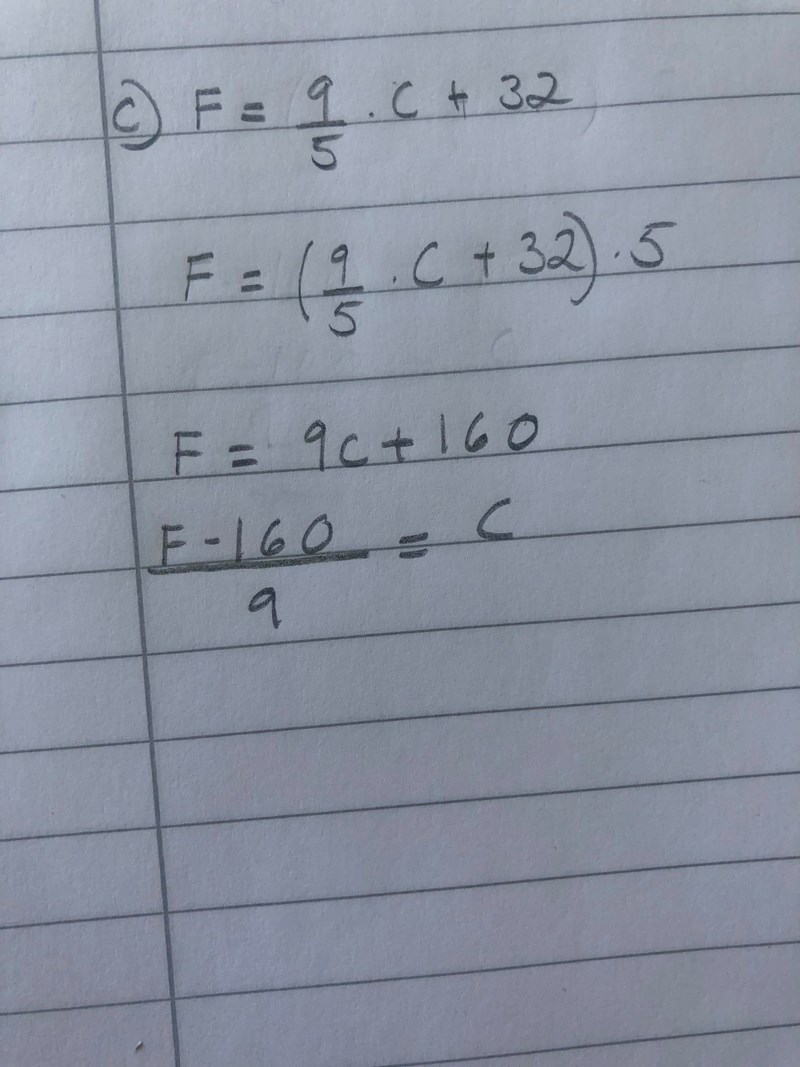 c) F = 9/5 · C + 32
F = (9/5 · C + 32) · 5
F = 9C + 160
F - 160/9 = C